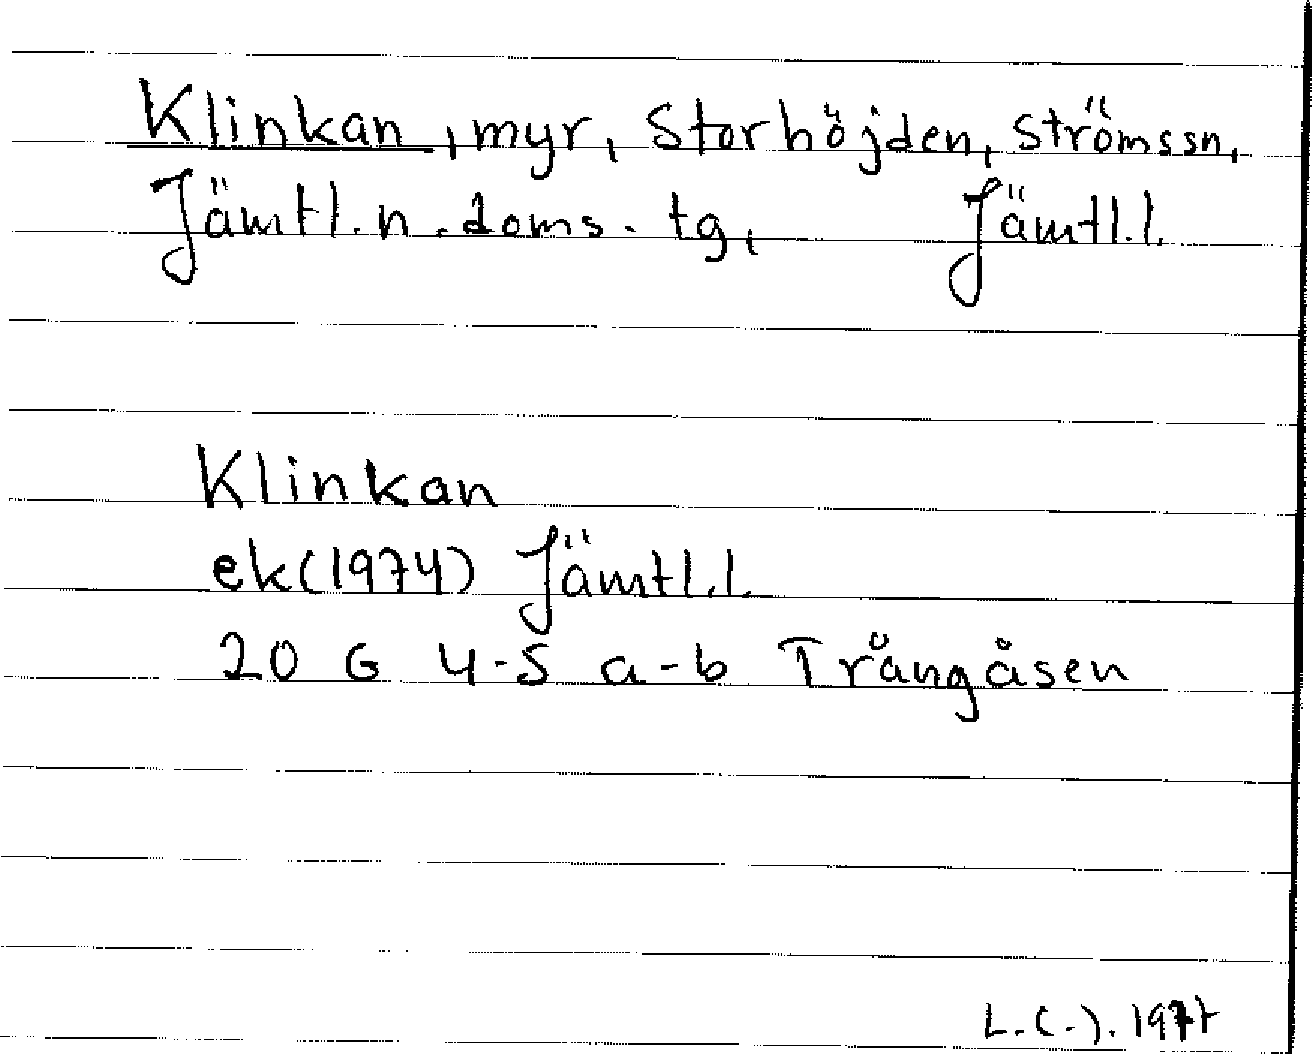 Klinkan, myr, Storhöjden, Strömssn,
Jämtl.n.doms.tg, Jämtl.l.
Klinkan
ek(1974) Jämtl.l.
20 G 4-5 a-b Trångåsen
L.(-). 1977